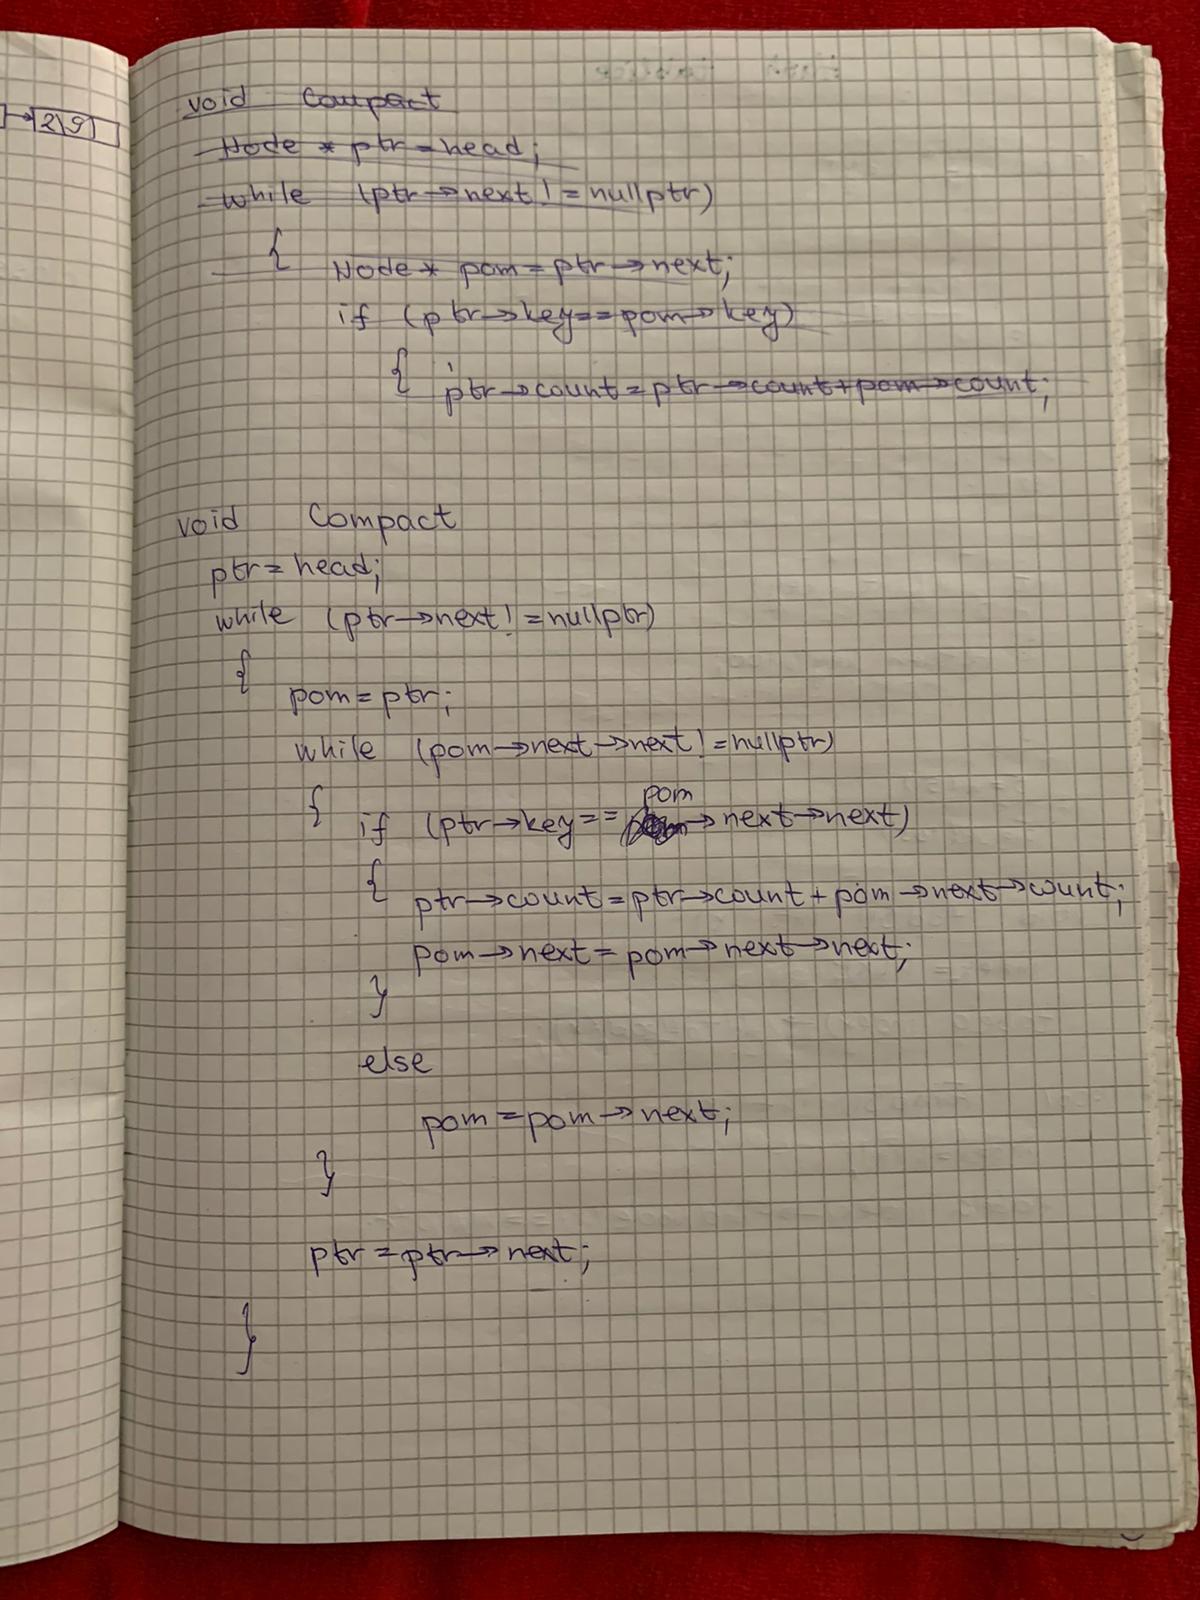 2|9
void Compact
Node * ptr = head;
while (ptr→next != nullptr)
{
Node * pom = ptr→next;
if (ptr→key == pom→key)
{ ptr→count = ptr→count + pom→count;
void Compact
ptr = head;
while (ptr→next != nullptr)
{
pom = ptr;
while (pom→next→next != nullptr)
{ if (ptr→key == pom→next→next)
{ ptr→count = ptr→count + pom→next→count;
pom→next = pom→next→next;
}
else
pom = pom→next;
}
ptr = ptr→next;
}